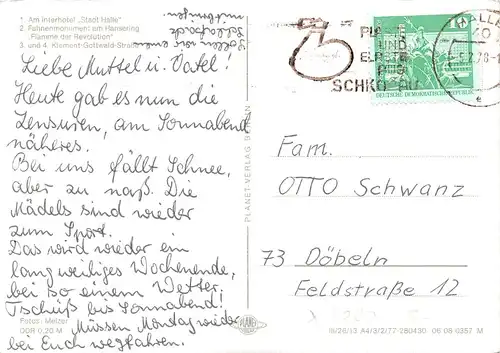 1. Am Interhotel "Stadt Halle"
2. Fahnenmonument am Hansering
"Flamme der Revolution"
3. und 4. Klement-Gottwald-Straße
Sollen wir euren
Schlafsack
mitbringen
Liebe Muttel u. Vatel!
Heute gab es nun die
Zensuren, am Sonnabend
näheres.
Bei uns fällt Schnee,
aber zu naß. Die
Mädels sind wieder
zum Sport.
Das wird wieder ein
langweiliges Wochenende,
bei so einem Wetter.
Tschüß bis Sonnabend!
Müssen Montag wieder
bei Euch wegfahren.
Fotos: Melzer
DDR 0,20 M
PLANET-VERLAG BERLIN
PLANET
PLA
UND
ELA
SCHKOPAU
HALLE
DEUTSCHE DEMOKRATISCHE REPUBLIK
10
Fam.
OTTO Schwanz
73 Döbeln
Feldstraße 12
III/26/13 A4/3/2/77-280430 06 08 0357 M